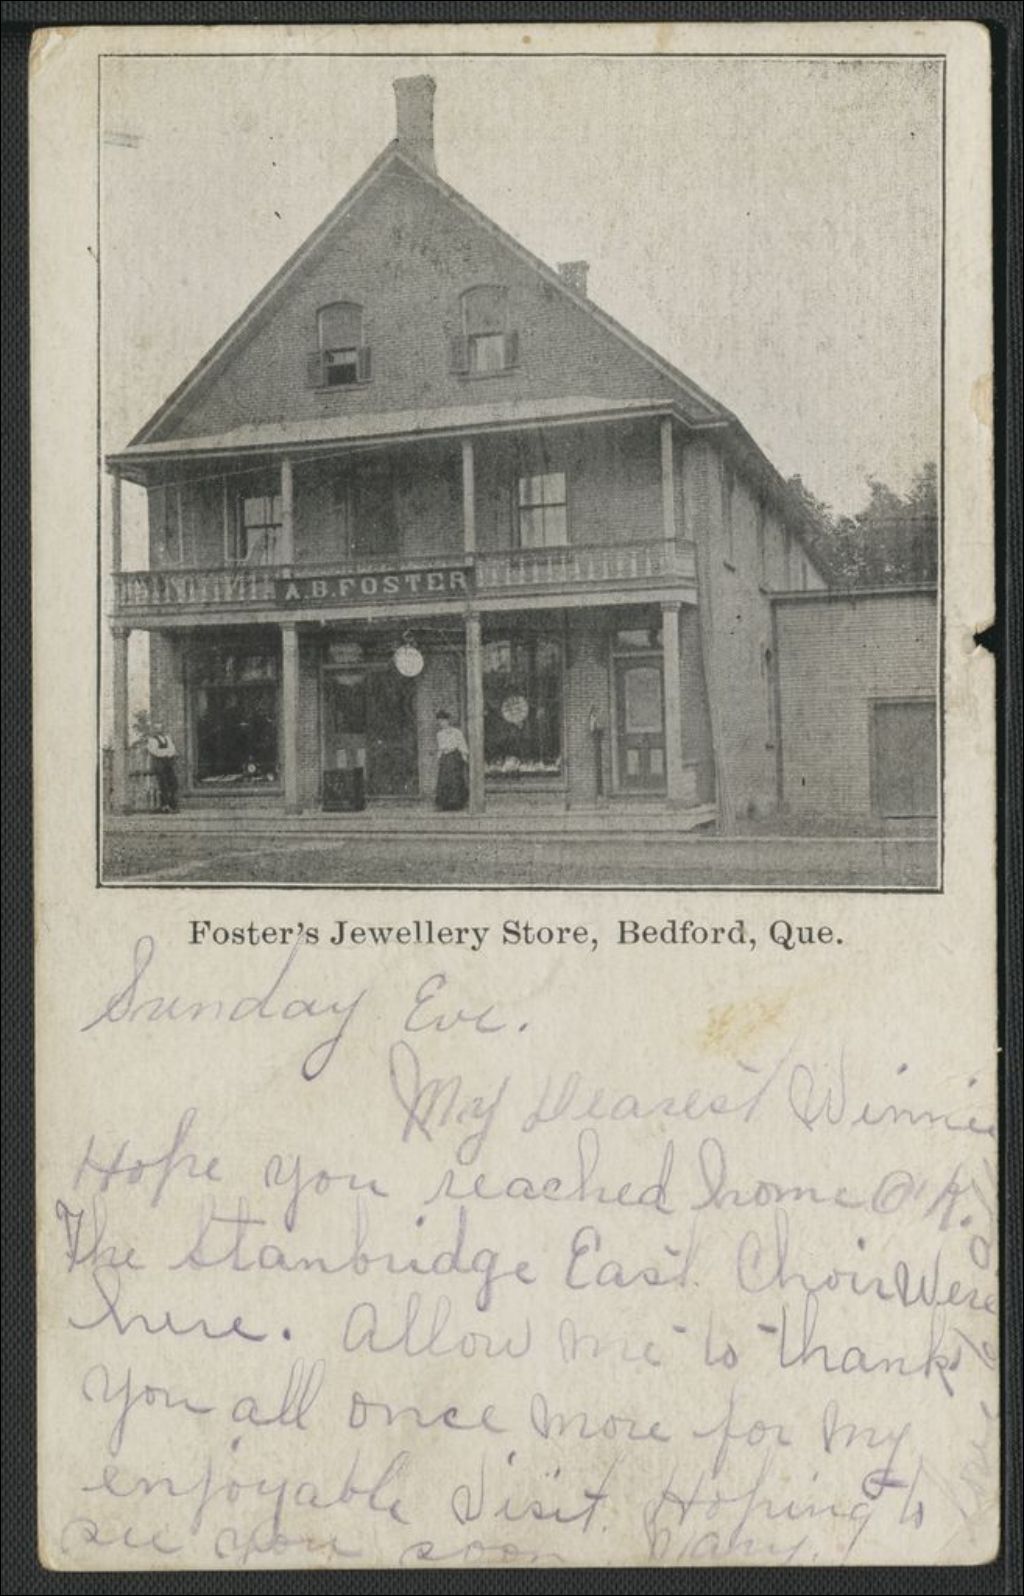 A.B.FOSTER
Foster's Jewellery Store, Bedford, Que.
Sunday Eve.
My Dearest Winnie
Hope you reached home O.K.
The Stanbridge East Choir were
here. Allow me to thank
you all once more for my
enjoyable visit. Hoping to
see you soon. Mary.